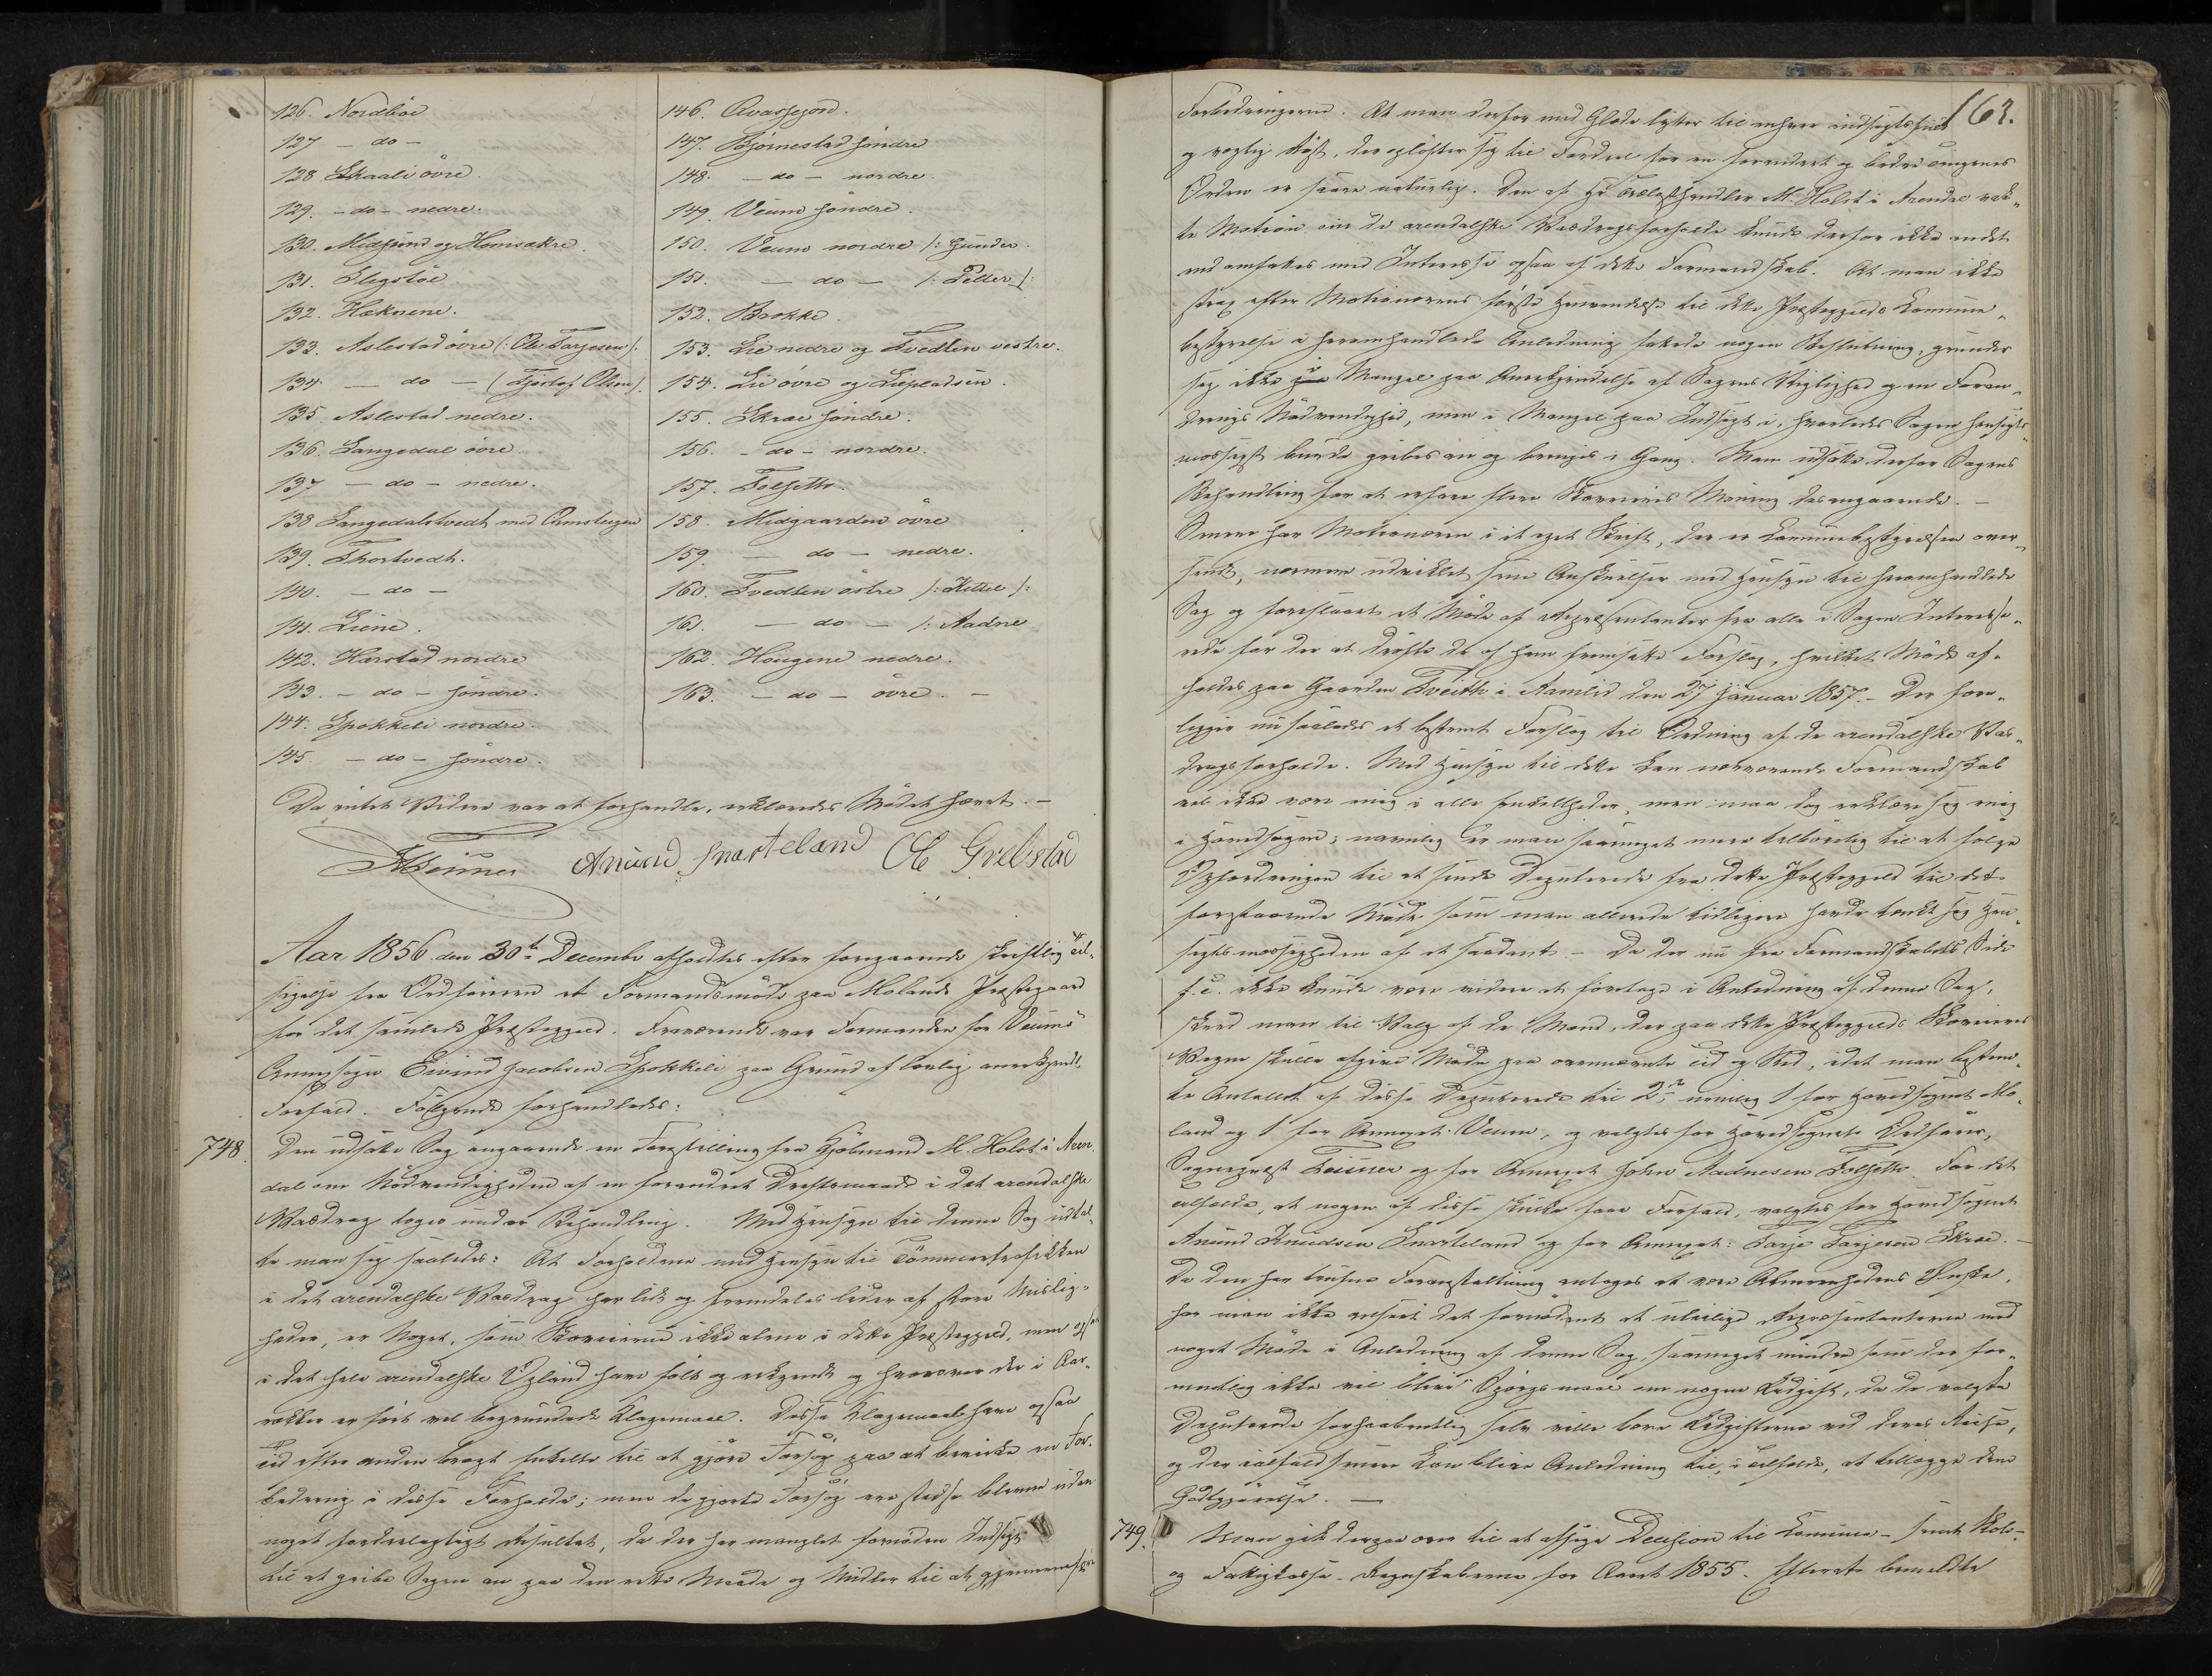 126. Nordböe
127 - do -
128 Skaali övre.
129. - do - nedre.
130. Midgsund og Homvakre.
131. Flegstöe
132. Haknene.
133. Aslestad övre (: Ole Tarjesen).
134. - do - (Gjerlof Olsen).
135. Aslestad nedre.
136. Langedal övre
137 - do - nedre.
138 Langedalstvedt med Omsteigen
139. Thortvedt.
140. - do -
141. Liene.
142. Harstad nordre
143. - do - söndre.
144. Spokkeli nordre.
145 - do - söndre.
146. Qvassejord.
147. Bjørnestad söndre
148. - do - nordre.
149. Veum söndre.
150. Veum nordre /: Gunder.
151. - do - /: Petter :/
152. Brokke.
153. Lie nedre og Tvedten vestre.
154. Lie övre og Liepladsen.
155. Skrae söndre.
156. - do - nordre.
157. Folsette.
158. Midgaarden övre
159. - do - nedre.
160. Tvedten östre /: Kittel /:
161. - do - /: Aadne
162. Haugene nedre.
163. - do - övre. -
Da intet Videre var at forhandle, erklæredes Mödet hævet. -
Anund Snarteland Ole Grelstad
Aar 1856 den 30te Decembr afholdtes efter foregaaende skriftlig Til-
sigelse fra Ordføreren et Formandsmöde paa Molands Præstegaard
for det samlede Præstegjeld. Fraværende var Formanden for Veums
Annexsogn Eivind Jacobsen Spokkeli paa Grund af lovlig anerkjendt
Forfald. Fölgende forhandledes:
748. Den udsatte Sag angaaende en Forestilling fra Kjöbmand M. Holst i Aren-
dal om Nödvendigheden af en forandret Driftsmaade i det arendalske
Vasdrag toges under Behandling. Med Hensyn til denne Sag udtal-
te man sig saaledes: At Forholdene med Hensyn til Tömmertrafikken
i det arendalske Vasdrag har lidt og fremdeles lider af store Mislig-
heder, er Noget, som Skoveierne ikke alene i dette Præstegjeld, men og
i det hele arendalske Opland have fölt og erkjendt og hvorover der i Aar-
rækker er fört vel begrundede Klagemaal. Disse Klagemaal have ogsaa
Tid efter anden bragt Enkelte til at gjöre Forsög paa at bevirke en For-
bedring i disse Forholde; men de gjorte Forsög ere stedse blevne uden
noget fordeelagtigt Resultat, da der har manglet fornöden Indsigt
til at gribe Sagen an paa den rette Maade og Midler til at gjennemföre
163.
Forbedringerne. At man derfor med Glæde lytter til enhver indsigtsfuld
og vægtig Röst, der oplöfter sig til Fordeel for en forandret og bedre Tingenes
Orden er saare naturlig. Den af Hr Trælasthandler M. Holst i Arendal vak-
te Motion om de arendalske Vasdragsforholde kunde derfor ikke andet
end omfattes med Interesse ogsaa af dette Formandskab. At man ikke
strax efter Motionærens förste Henvendelse til dette Præstegjelds Commune-
bestyrelse i heromhandlede Anledning fattede nogen Beslutning, grunder
sig ikke i Mangel paa Anerkjendelse af Sagens Vigtighed og en Foran-
drings Nödvendighed, men i Mangel paa Indsigt i, hvorledes Sagen hensigts-
mæssigst burde gribes an og bringes i Gang. Man udsatte derfor Sagens
Behandling for at erfare flere Skoveieres Mening desangaaende. -
Senere har Motionæren i et eget Skrift, der er Communebestyrelsen over-
sendt, nærmere udviklet sine Anskuelser med Hensyn til heromhandlede
Sag og foreslaaet et Möde af Repræsentanter fra alle i Sagen Interesse-
rede for der at dröfte de af ham fremsatte Forslag, hvilket Möde af-
holdes paa Gaarden Tveith i Aamlid den 27 Januar 1857. - Der fore-
ligger nu saaledes et bestemt Forslag til Ordning af de arendalske Vas-
dragsforholde. Med Hensyn til dette kan nærværende Formandskab
vel ikke være enig i alle Enkeltheder, men maa dog erklære sig enig
i Hovedsagen; navnlig er man saameget mere tilböielig til at fölge
Opfordringen til at sende Deputerede fra dette Præstegjeld til det
forestaaende Möde som man allerede tidligere havde tænkt sig Hen-
sigtsmæssigheden af et saadant. - Da der nu fra Formandskabets Side
f. T. ikke kunde være videre at foretage i Anledning af denne Sag,
skred man til Valg af de Mænd, der paa dette Præstegjelds Skoveieres
Vegne skulle afgive Möde paa ovennævnte Tid og Sted, idet man bestem-
te Antallet af disse Deputerede til 2de, nemlig 1 for Hovedsognet Mo-
land og 1 for Annexet Veum, og valgtes for Hovedsognet Ordfører,
Sognepræst Leiuner og for Annexet John Aadnesen Folsette. For det
Tilfælde, at nogen af disse skulle faae Forfald, valgtes for Hovedsognet
Anund Knudsen Snarteland og for Annexet: Tarje Tarjesen Skrae. -
Da den her trufne Foranstaltning antages at være Almeenhedens Önske,
har man ikke anseet det fornödent at uleilige Repræsentanterne med
noget Möde i Anledning af denne Sag, saameget mindre som der for-
mentlig ikke vil blive Spörgsmaal om nogen Udgift, da de valgte
Deputerede forhaabentlig selv ville bære Udgifterne ved deres Reise,
og der ialfald senere kan blive Anledning til, i Tilfælde, at tillægge dem
Godtgjörelse. -
749. Man gik derpaa over til at afsige Decision til Commune- samt Skole-
og Fattigkasse-Regnskaberne for Aaret 1855. Efterat bemeldte